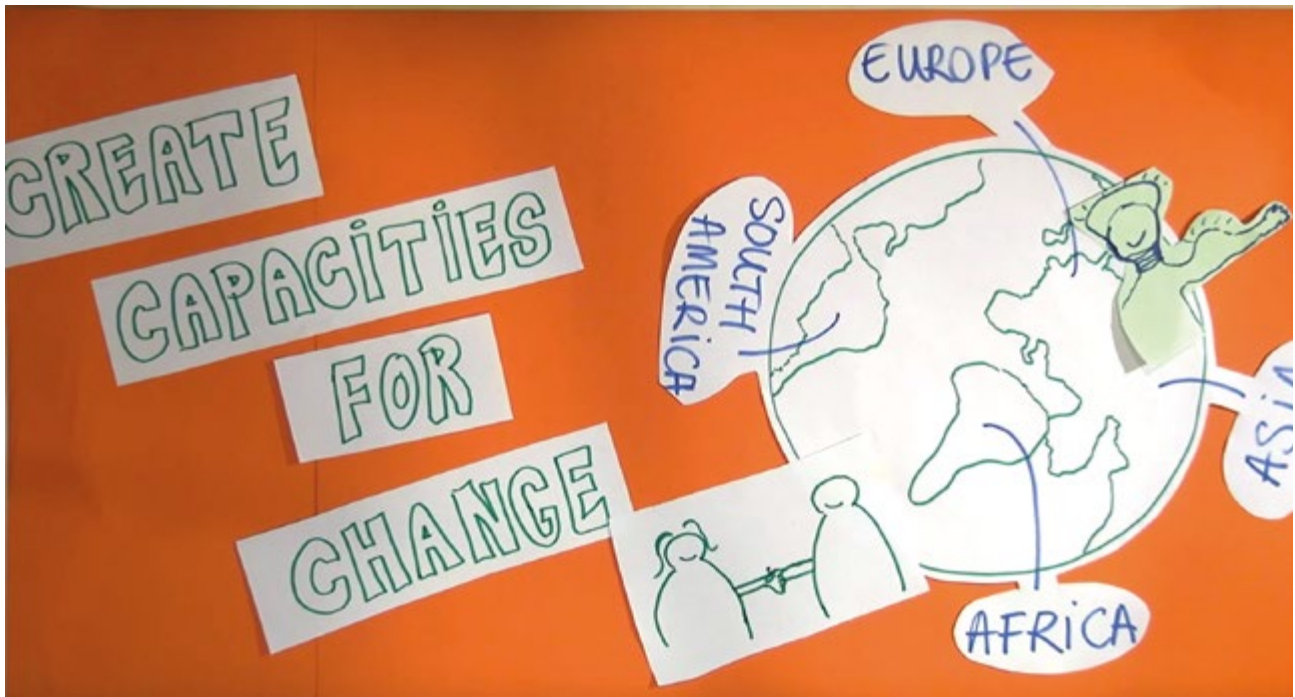 CREATE
CAPACITIES
FOR
CHANGE
EUROPE
SOUTH
AMERICA
ASIA
AFRICA